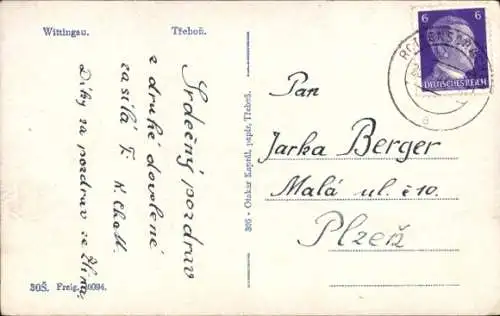 Wittingau. Třeboň.
Srdečný pozdrav
z druhé dovolené
zasílá F.
Díky za pozdrav ze Zlína.
305 - Otakar Kaprál, papír, Třeboň.
30Š. Freig.
6 6
DEUTSCHES REICH
Pan
Jarka Berger
Malá ul. č 10.
Plzeň